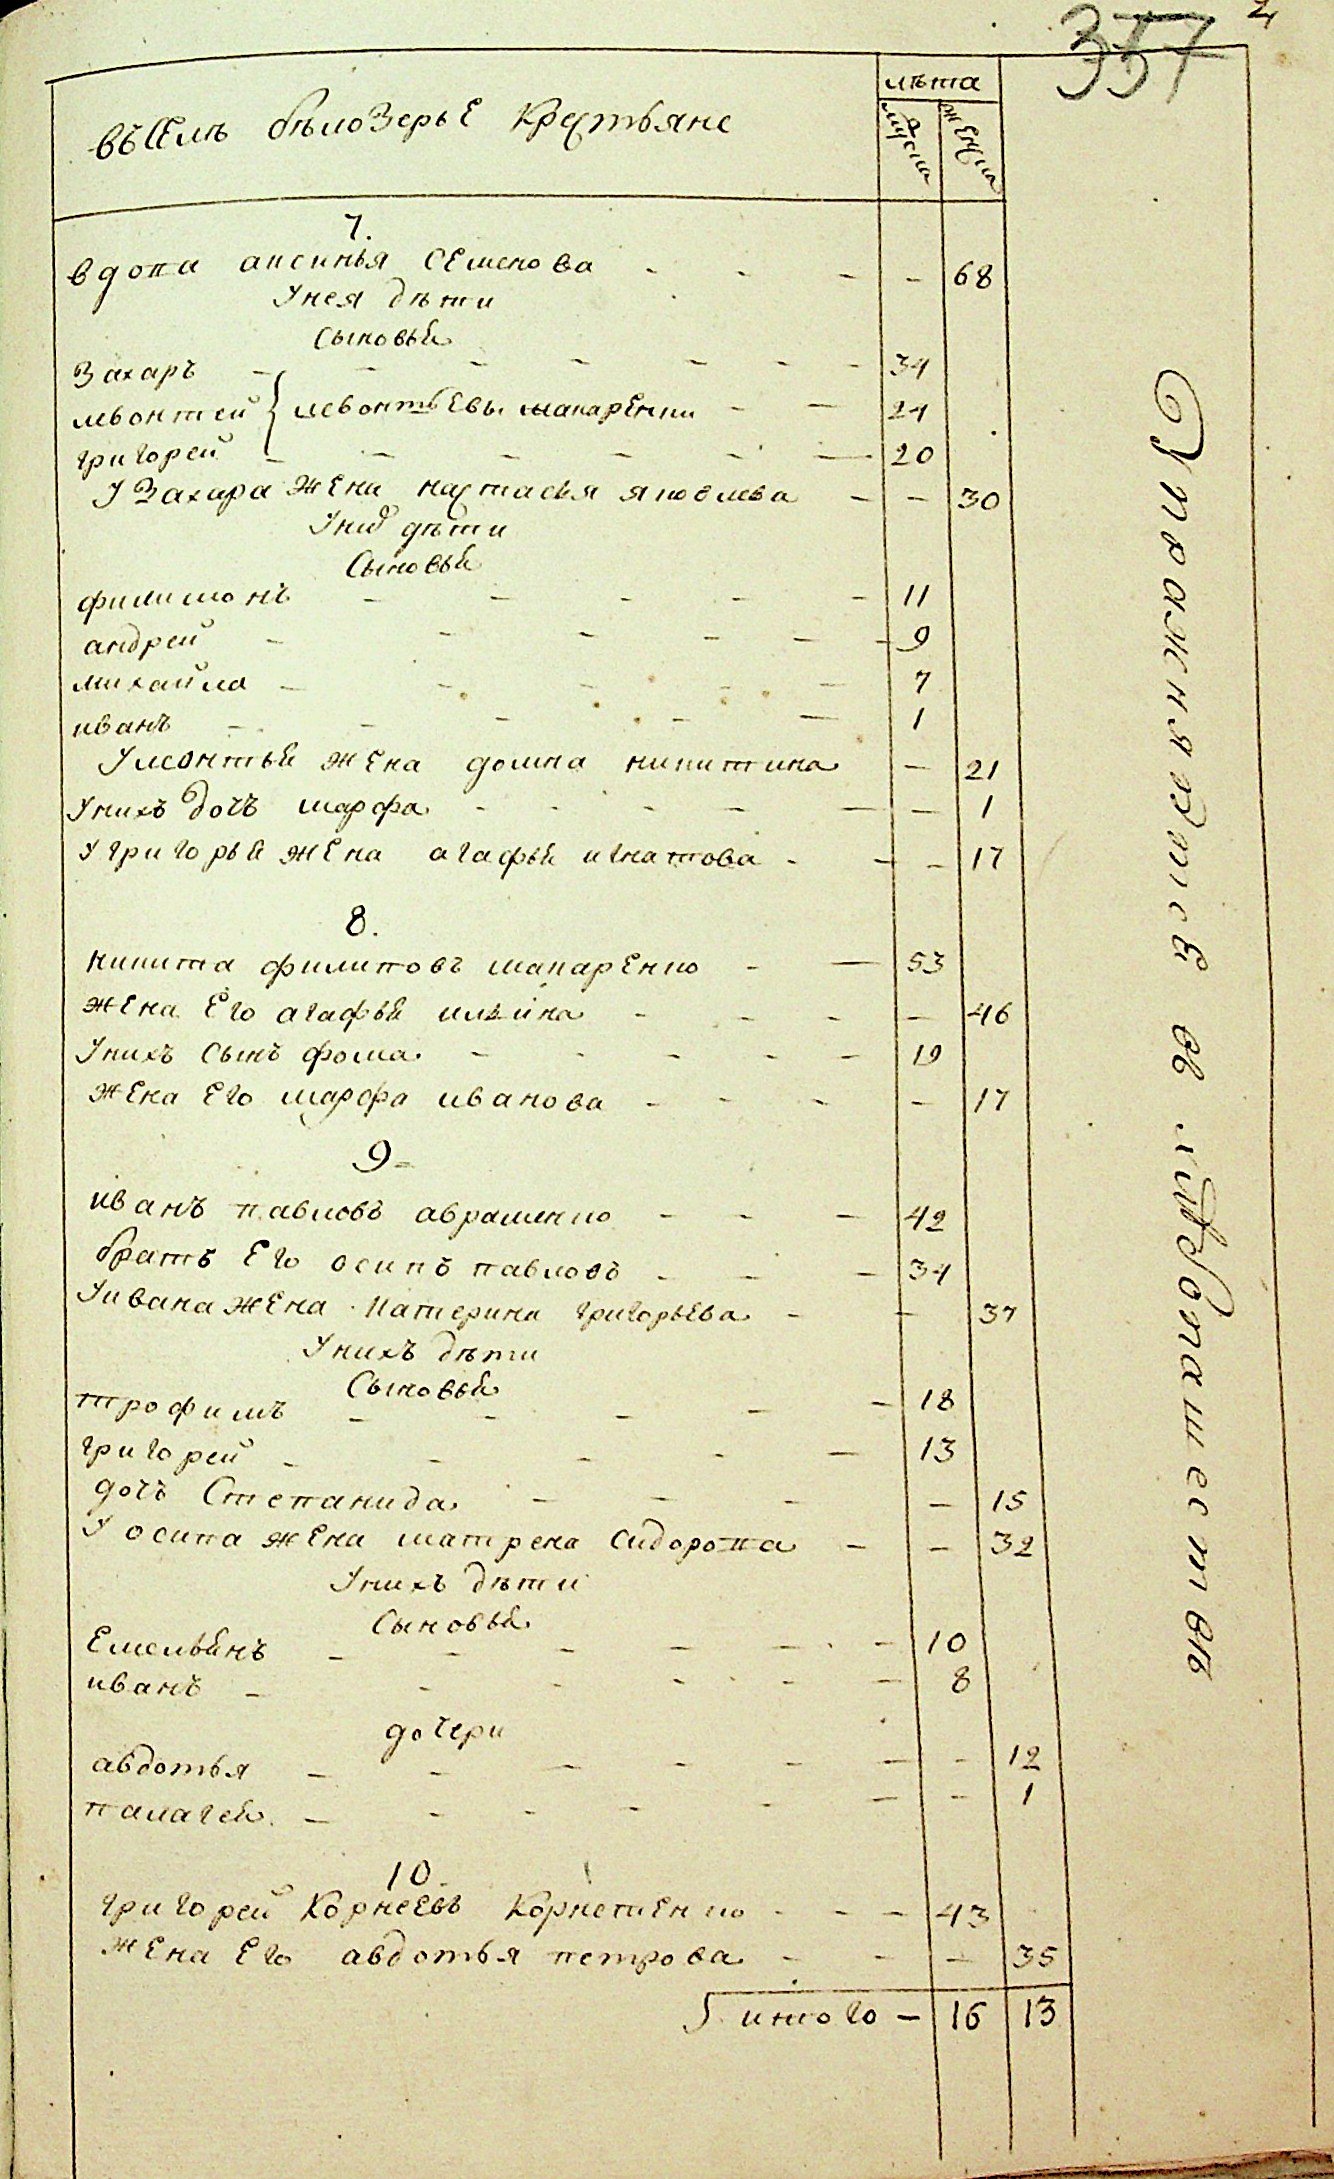 357
лѣта
въ селѣ бѣлозерье крестьяне
мужска женска
7.
вдова аксинья семенова - - - - 68
У нея дѣти
сыновья
захаръ - - - - - - 34
левонтей } левонтьевы макаренки - - 24
григорей - - - - - - 20
У захара жена настасья яковлева - - 30
У них дѣти
сыновья
филимонъ - - - - - 11
андрей - - - - - 9
михайла - - - - - 7
иванъ - - - - - 1
У леонтья жена домна никитина - 21
У нихъ дочь марфа - - - - - - 1
У григорья жена агафья игнатова - - - 17
8.
никита филиповъ макаренко - - 53
жена его агафья ильина - - - - 46
У нихъ сынъ фома - - - - - 19
жена его марфа иванова - - - - 17
9
иванъ павловъ авраменко - - - 42
братъ его осипъ павловъ - - - 34
У ивана жена катерина григорьева - - 37
У нихъ дѣти
сыновья
трофимъ - - - - - 18
григорей - - - - - 13
дочь степанида - - - - 15
У осипа жена матрена сидорова - - 32
У нихъ дѣти
сыновья
емельянъ - - - - - - 10
иванъ - - - - - - 8
дочери
авдотья - - - - - - - 12
палагея - - - - - - - 1
10.
григорей корнеевъ корнетенко - - - 43
жена его авдотья петрова - - - 35
итого - 16 13
Упражняемся въ хлебопашествѣ